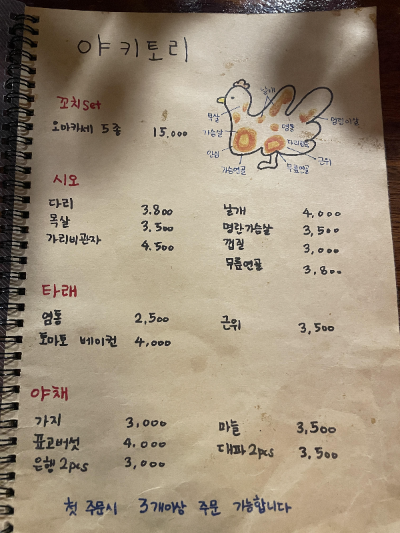 야키토리
꼬치set
오마카세 5종 15,000
날개
목살
가슴살
안심
가슴연골
염통
다리
무릎연골
근위
시오
다리 3.800
목살 3,500
가리비관자 4.500
날개 4,000
명란가슴살 3,500
껍질 3,000
무릎연골 3,800
타래
염통 2,500
토마토 베이컨 4,000
근위 3,500
야채
가지 3,000
표고버섯 4,000
은행 2pcs 3,000
마늘 3,500
대파 2pcs 3,500
첫 주문시 3개이상 주문 가능합니다